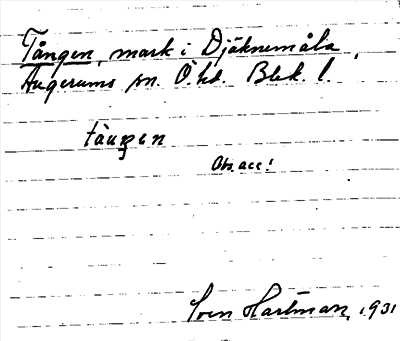 Tången, mark i Djäknemåla,
Augerums sn. Ö. hd. Blek. l.
tàŋen
Obs. acc!
Sven Hartman, 1931